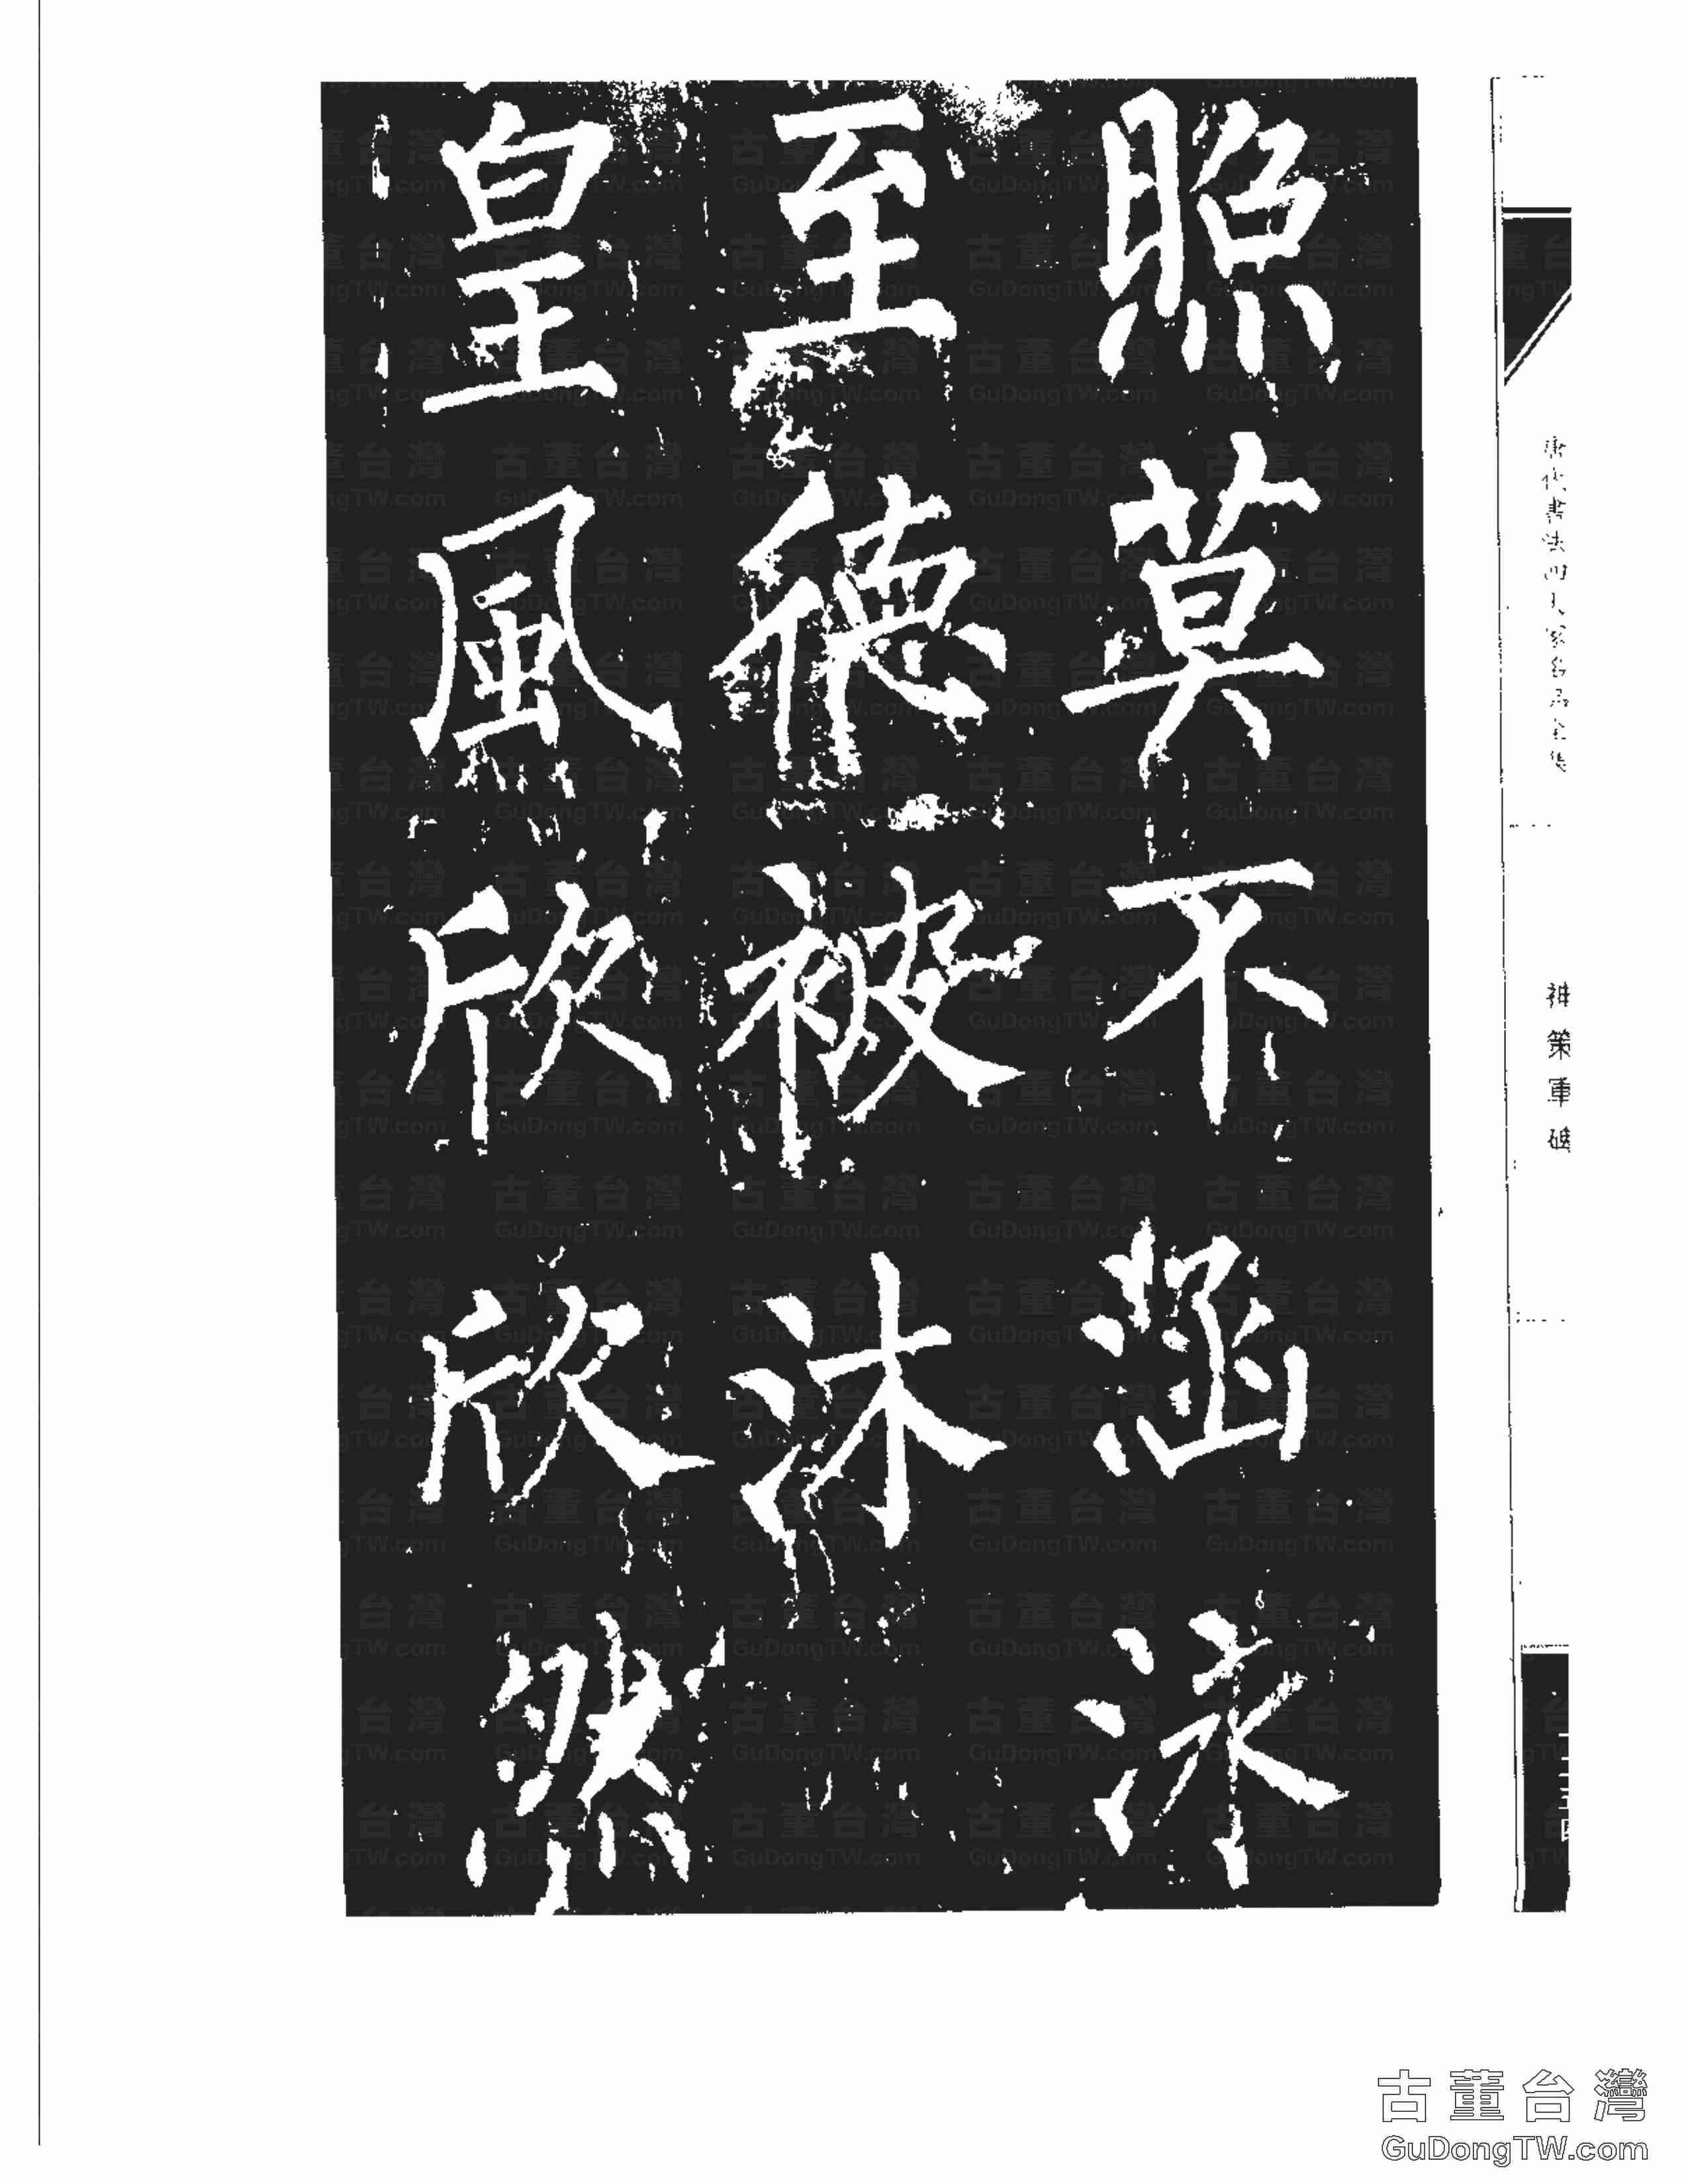 照莫不涵泳
至德被沐
皇風欣欣然
唐代書法四大家名品全集
神策軍碑
古董台灣
GuDongTW.com